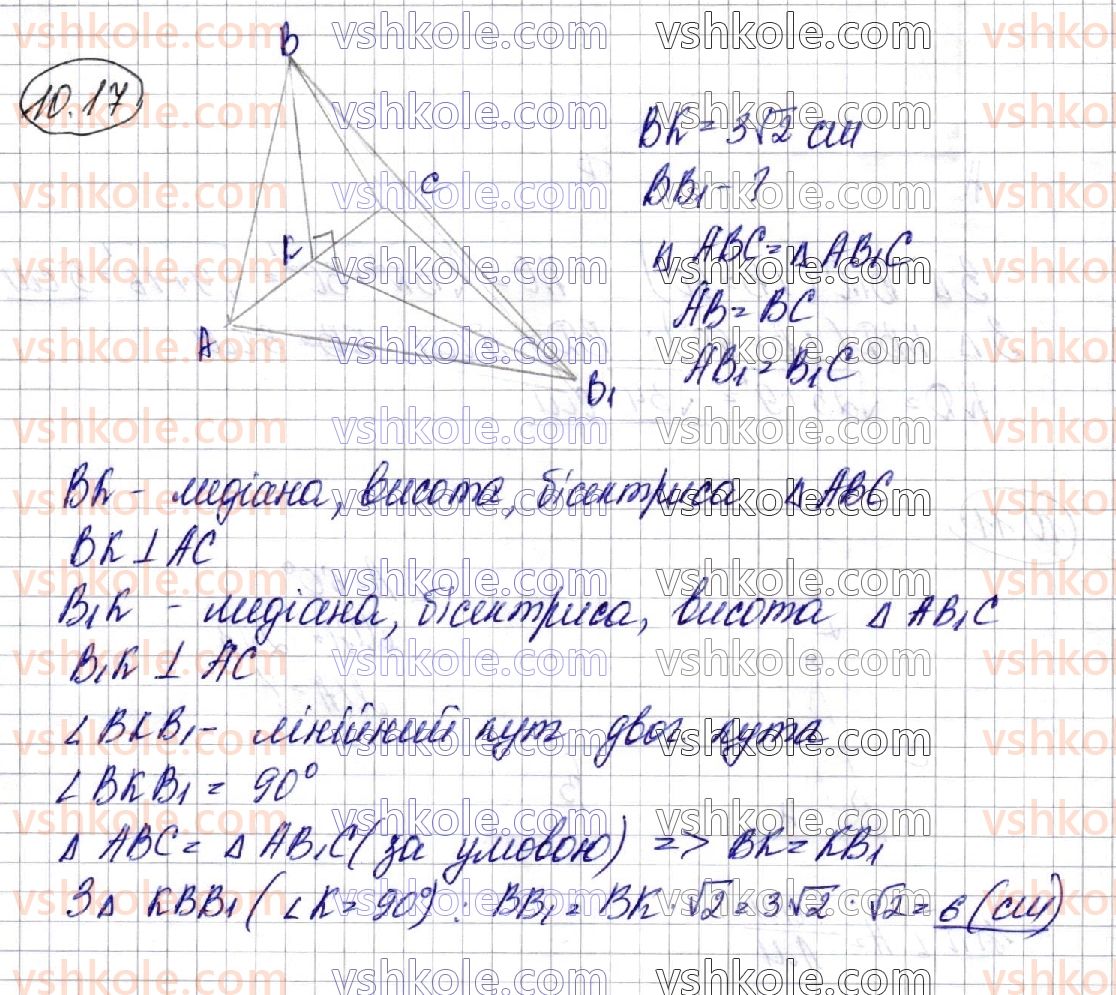 10.17
B
C
K
A
B₁
BK = 3√2 см
BB₁ - ?
△ ABC = △ AB₁C
AB = BC
AB₁ = B₁C
BK - медіана, висота, бісектриса △ ABC
BK ⊥ AC
B₁K - медіана, бісектриса, висота △ AB₁C
B₁K ⊥ AC
∠BKB₁ - лінійний кут двог кута
∠BKB₁ = 90°
△ ABC = △ AB₁C (за умовою) => BK = KB₁
З △ KBB₁ (∠K = 90°) : BB₁ = BK · √2 = 3√2 · √2 = 6 (см)
vshkole.com